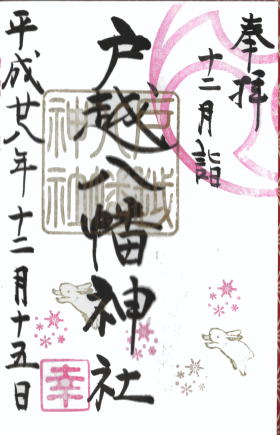 奉拝
十二月詣
戸越八幡神社
戸越八幡神社
平成廿八年十二月十五日
幸